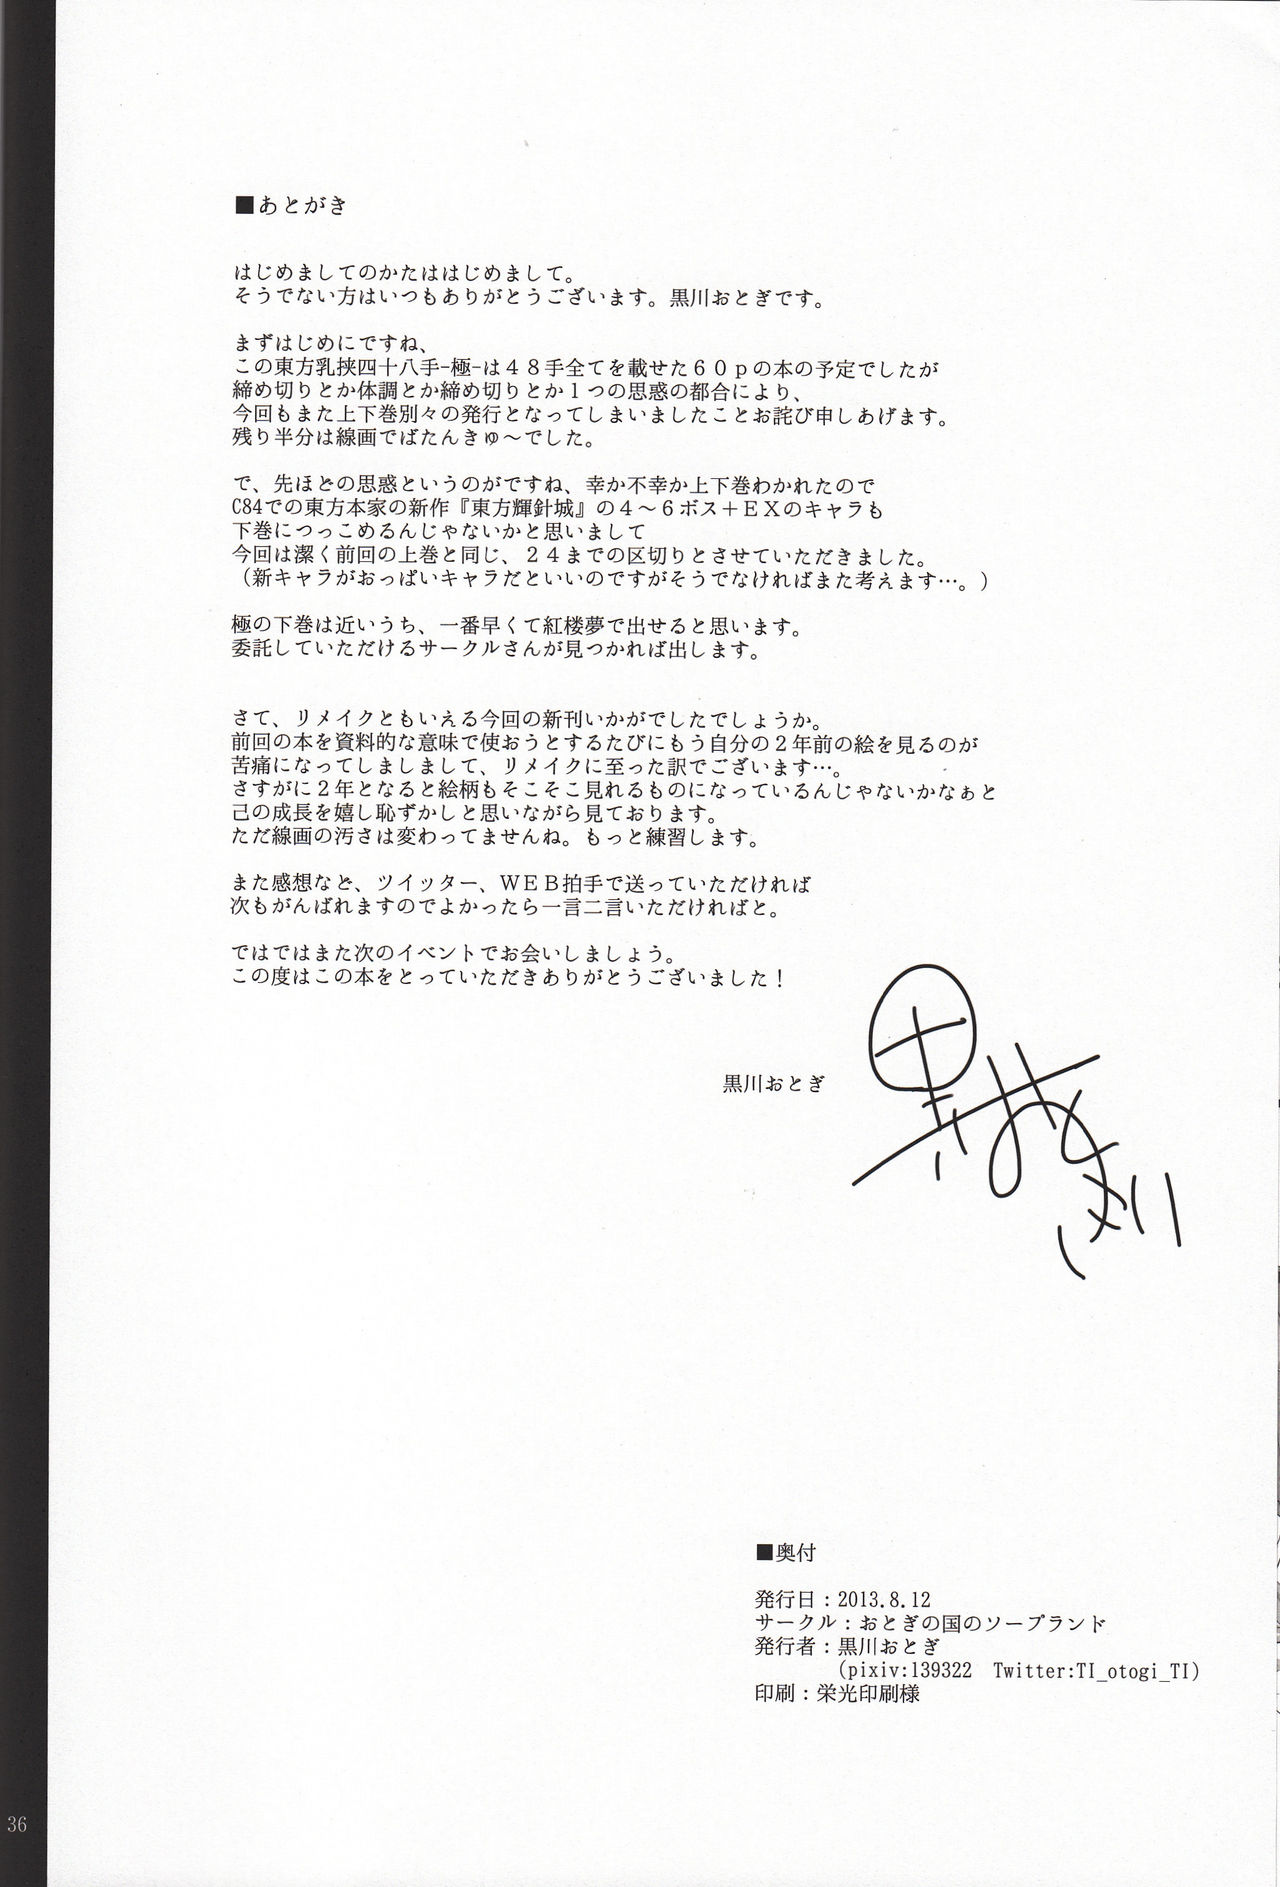 ■あとがき
はじめましてのかたははじめまして。
そうでない方はいつもありがとうございます。黒川おとぎです。
まずはじめにですね、
この東方乳挟四十八手-極-は４８手全てを載せた６０ｐの本の予定でしたが
締め切りとか体調とか締め切りとか１つの思惑の都合により、
今回もまた上下巻別々の発行となってしまいましたことお詫び申しあげます。
残り半分は線画でばたんきゅ～でした。
で、先ほどの思惑というのがですね、幸か不幸か上下巻わかれたので
C84での東方本家の新作『東方輝針城』の４～６ボス＋ＥＸのキャラも
下巻につっこめるんじゃないかと思いまして
今回は潔く前回の上巻と同じ、２４までの区切りとさせていただきました。
（新キャラがおっぱいキャラだといいのですがそうでなければまた考えます…。）
極の下巻は近いうち、一番早くて紅楼夢で出せると思います。
委託していただけるサークルさんが見つかれば出します。
さて、リメイクともいえる今回の新刊いかがでしたでしょうか。
前回の本を資料的な意味で使おうとするたびにもう自分の２年前の絵を見るのが
苦痛になってしましまして、リメイクに至った訳でございます…。
さすがに２年となると絵柄もそこそこ見れるものになっているんじゃないかなぁと
己の成長を嬉し恥ずかしと思いながら見ております。
ただ線画の汚さは変わってませんね。もっと練習します。
また感想など、ツイッター、ＷＥＢ拍手で送っていただければ
次もがんばれますのでよかったら一言二言いただければと。
ではではまた次のイベントでお会いしましょう。
この度はこの本をとっていただきありがとうございました！
黒川おとぎ
■奥付
発行日：2013.8.12
サークル：おとぎの国のソープランド
発行者：黒川おとぎ
(pixiv:139322　Twitter:TI_otogi_TI)
印刷：栄光印刷様
36